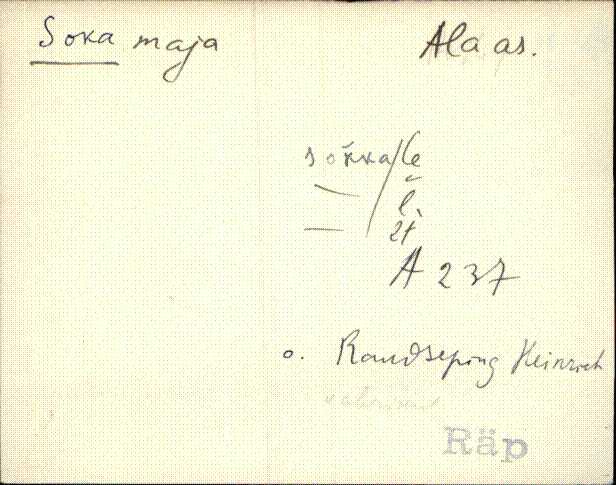 Soka maja Ala as.
sŏkka/le
l.
lt
A 237
o. Raudseping Heinrich
Räp